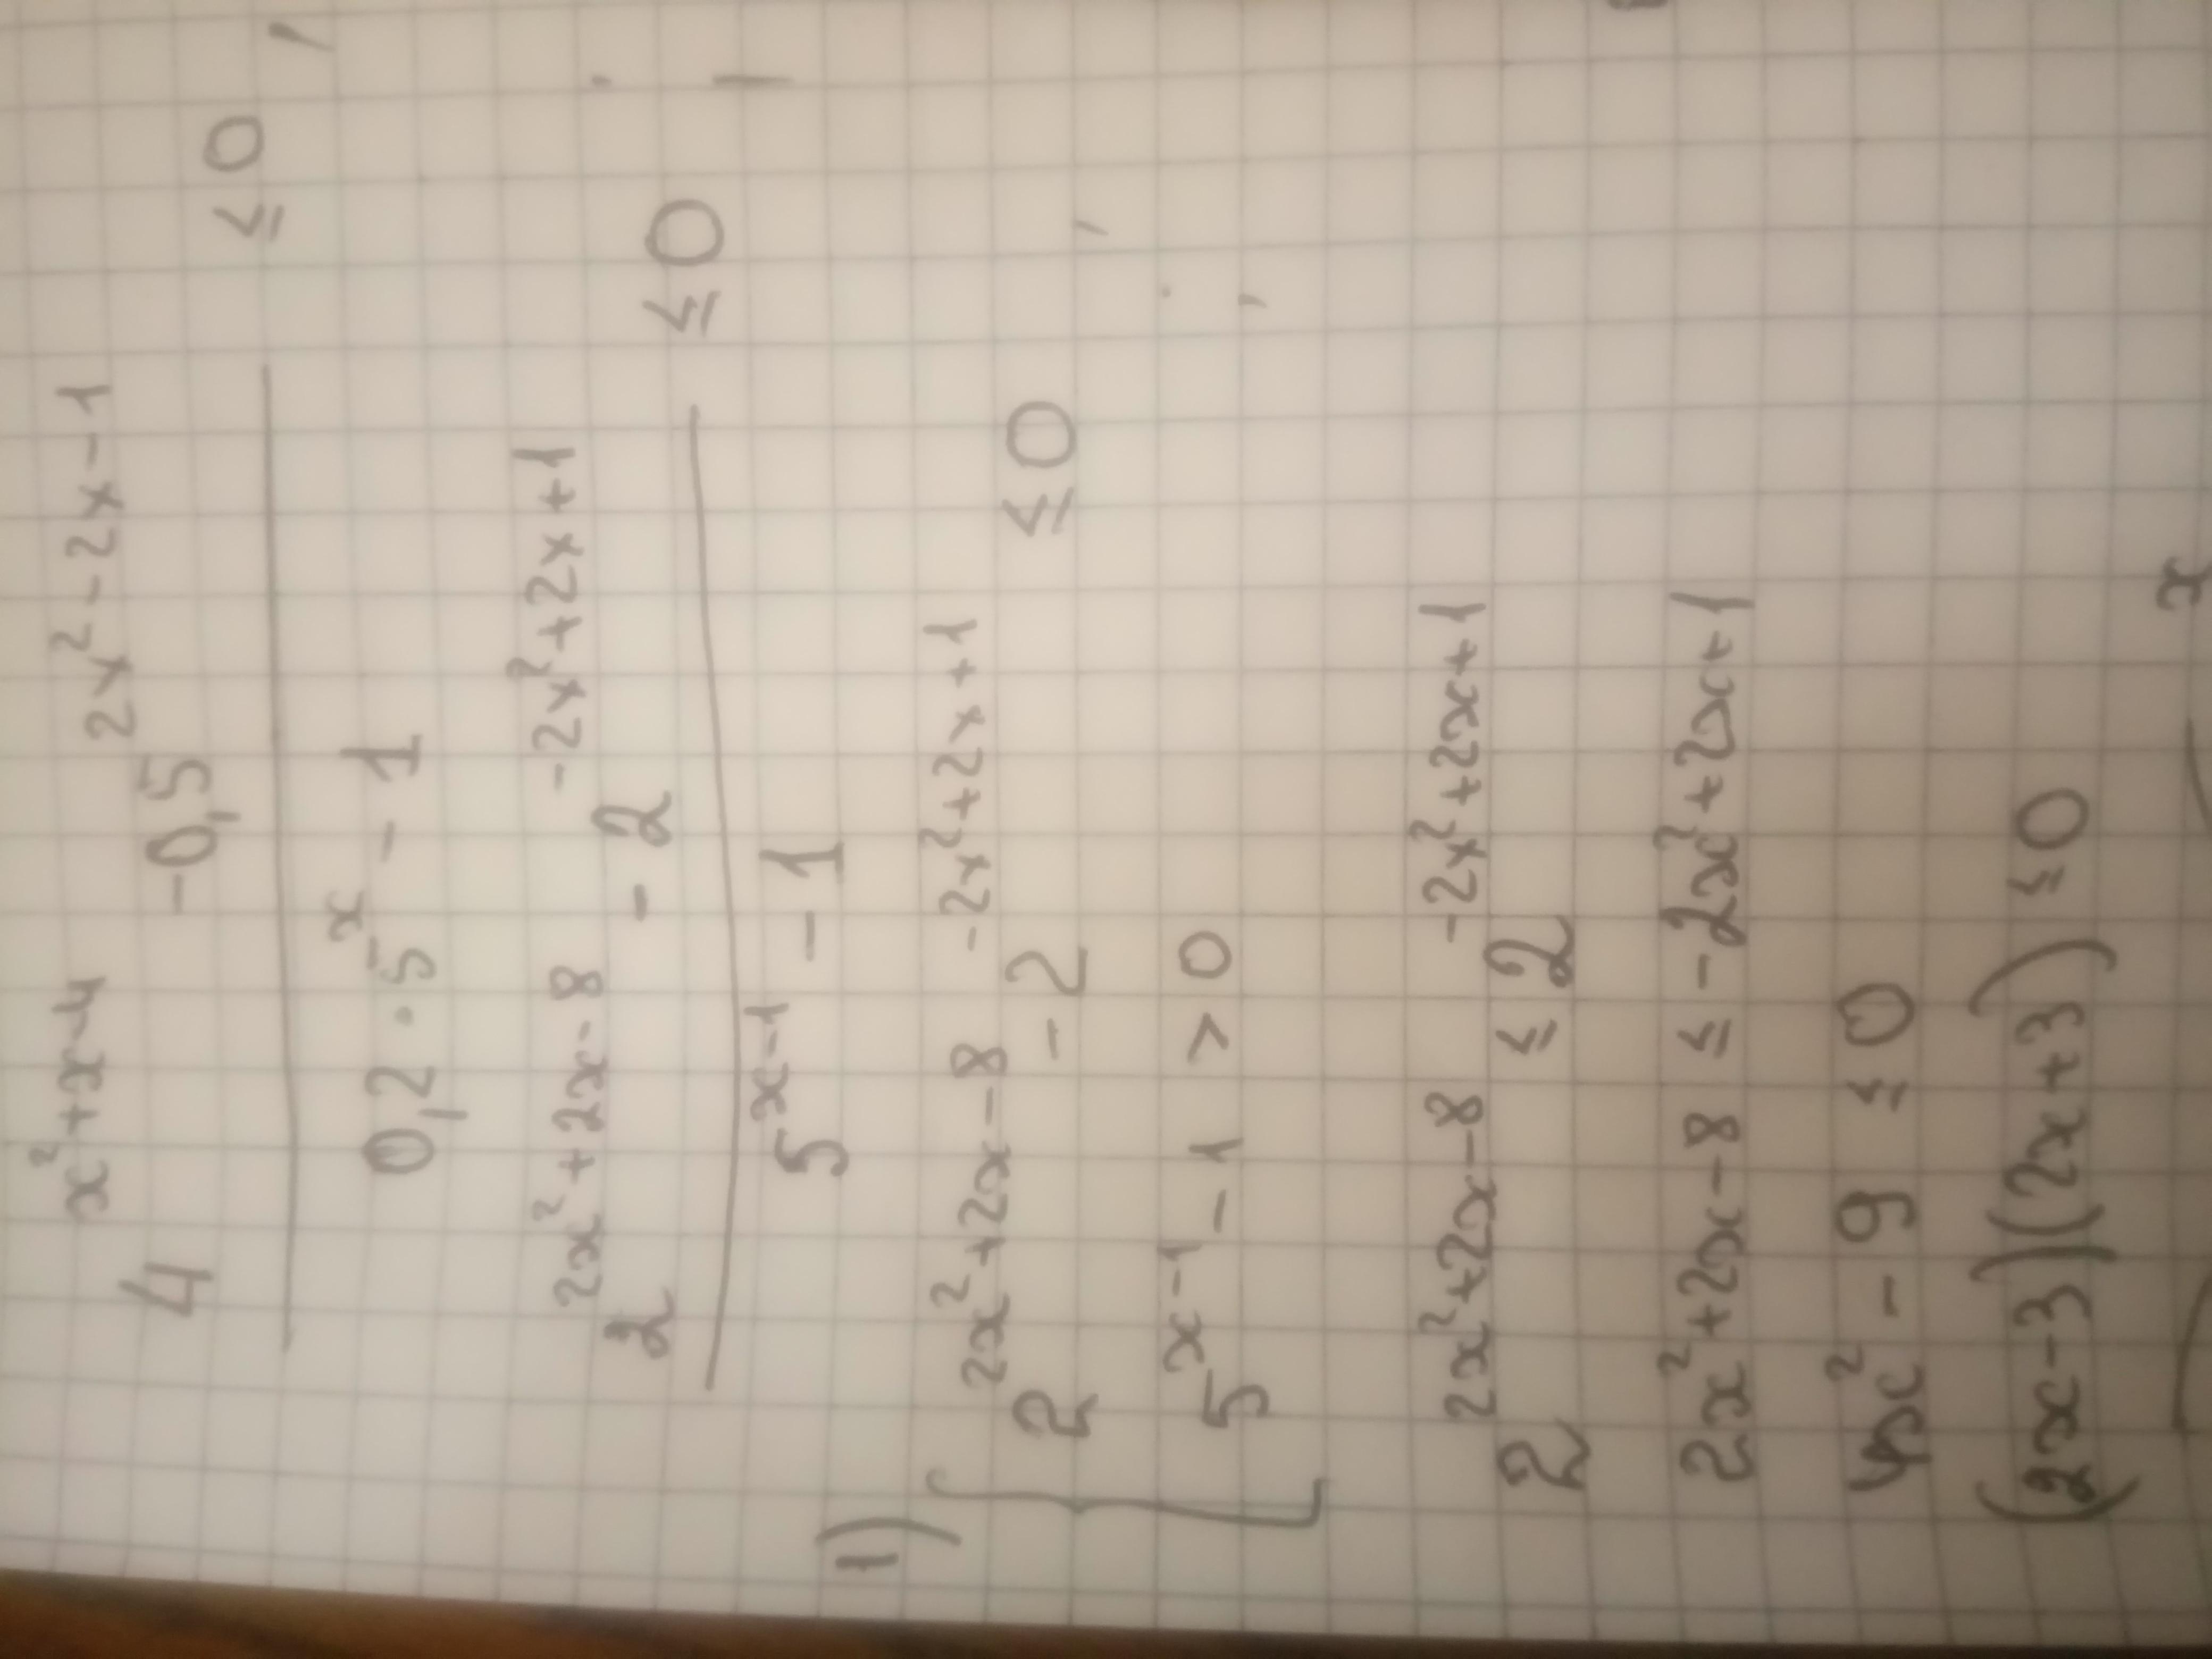 4^(x²+x-4) - 0,5^(2x²-2x-1)
≤ 0
0,2 · 5^x - 1
2^(2x²+2x-8) - 2^(-2x²+2x+1)
≤ 0
5^(x-1) - 1
1) { 2^(2x²+2x-8) - 2^(-2x²+2x+1) ≤ 0
5^(x-1) - 1 > 0
2^(2x²+2x-8) ≤ 2^(-2x²+2x+1)
2x²+2x-8 ≤ -2x²+2x+1
4x² - 9 ≤ 0
(2x-3)(2x+3) ≤ 0
x